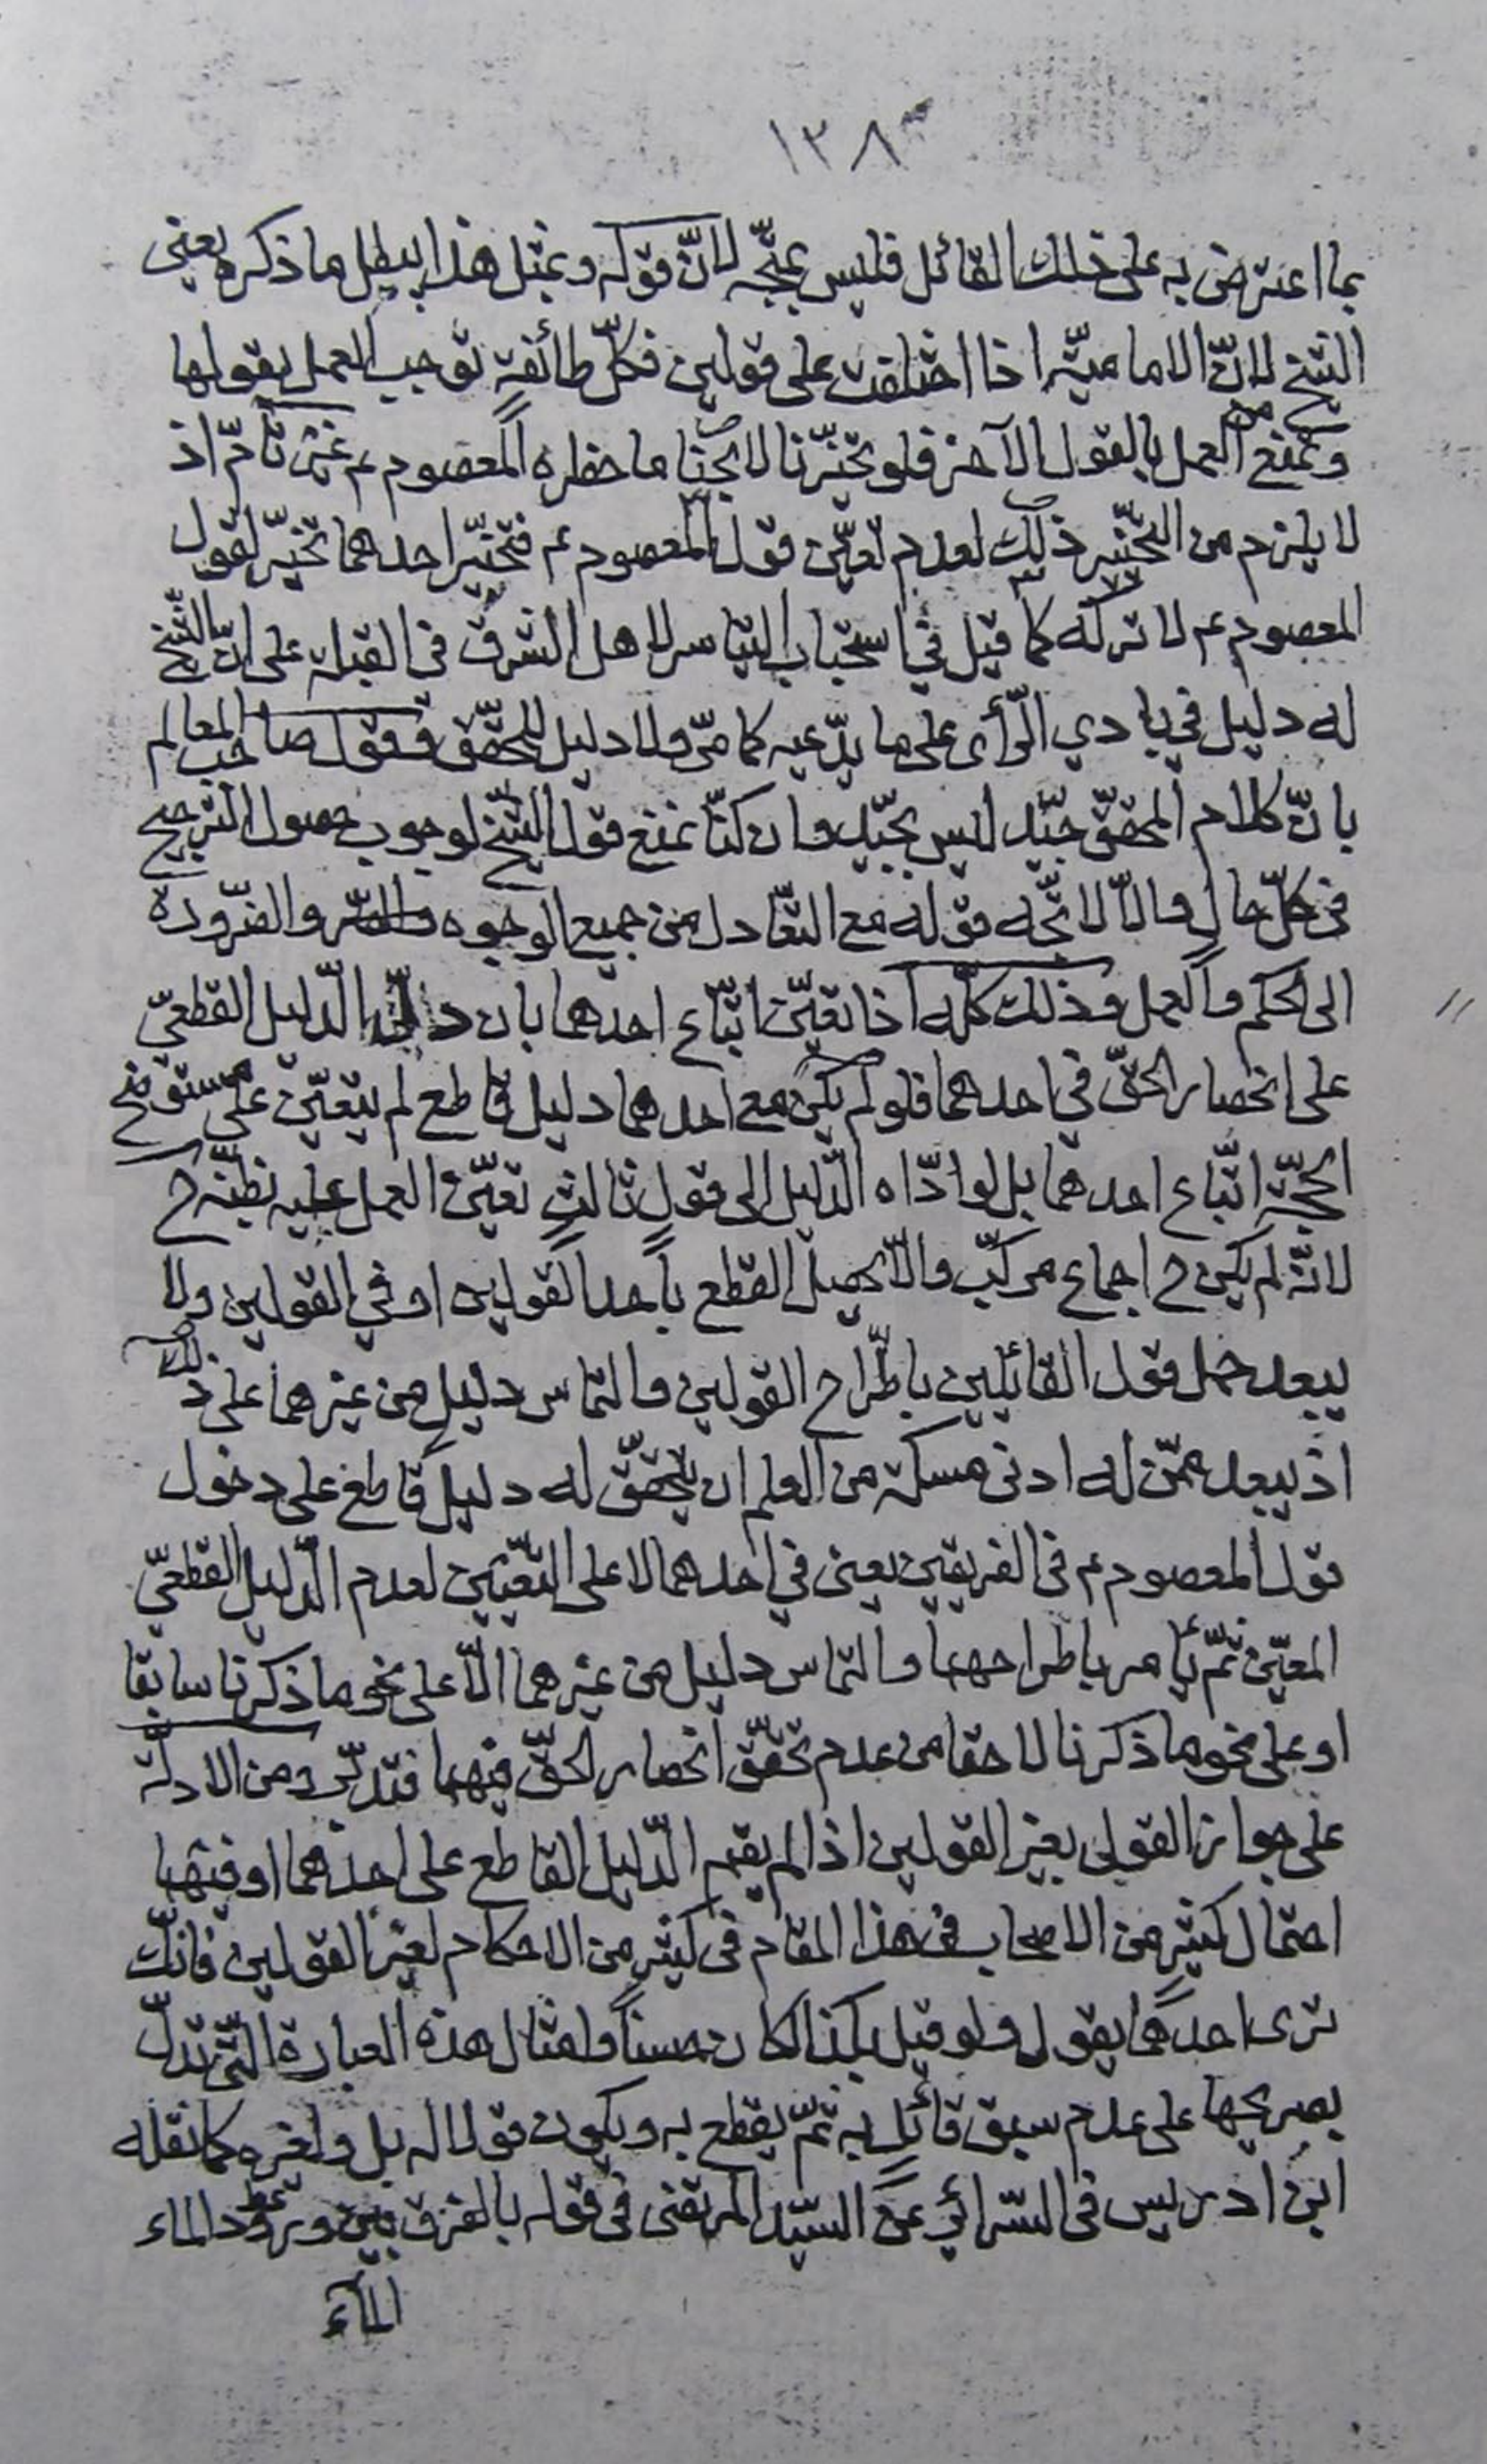 ١٣٨
بما اعترض به على ذلك القائل فليس بمتّجه لانّ قوله وبمثل هذا يبطل ما ذكره يعنى
الشيخ لانّ الاماميّة اذا اختلفت على قولين فكلّ طائفةٍ توجب العمل بقولها
وتمنع من العمل بالقول الآخر فلو تخيّرنا لابحنا ما حظره المعصوم ع غير تامّ اذ
لا يلزم من التّخيّير ذلك لعدم تعيّن قول المعصوم ع فتخيّر احدهما تخيّر لقول
المعصوم ع لا تركه كما قيل في استحباب التياسر لاهل الشرق فى القبلة على انّ الشّيخ
له دليل في بادي الرّأى على ما يدّعيه كما مرّ ولا دليل للمحقّق فقول صاحب المعالم
بانّ كلام المحقّق جيّد ليس بجيّد وان كنّا نمنع قول الشّيخ لوجوب حصول الترجيح
فى كلّ حال والّا لاتّجه قوله مع التّعادل من جميع الوجوه والضّرورة
الى الحكم والعمل وذلك كلّه اذا تعيّن اتّباع احدهما بان دلّ الدّليل القطعىّ
على انحصار الحقّ في احدهما فلو لم يكن مع احدهما دليل قاطع لم يتعيّن على مستوضح
الحجّة اتّباع احدهما بل لو ادّاه الدّليل الى قولٍ ثالثٍ تعيّن العمل عليه بظنّه ح
لانّه لم يكن ح اجماع مركّب والّا يحصل القطع باحد القولين او في القولين ولا
يبعد حمل قول القائلين باطّراح القولين والتماس دليلٍ من غيرهما على ذلك
اذ يبعد عمّن له ادنى مسكة من العلم ان يتحقّق له دليل قاطع على دخول
قول المعصوم ع فى الفريقين يعنى في احدهما لا على التّعيّين لعدم الدّليل القطعىّ
المعيّن ثمّ يأمر باطراحهما والتماس دليل من غيرهما الّا على نحو ما ذكرنا سابقا
او على نحو ما ذكرنا لاحقا من عدم تحقّق انحصار الحقّ فيهما فتدبّر ومن الادلّة
على جواز القول بغير القولين اذا لم يقم الدّليل القاطع على احدهما او فيهما
احتمال كثيرٍ من الاصحاب فى هذا المقام فى كثيرٍ من الاحكام لغير القولين فانّك
ترى احدهم يقول ولو قيل بكذا لكان حسناً وامثال هذه العبارة الّتى تدلّ
بصريحها على عدم سبق قائلٍ به ثمّ يقطع به ويكون قولا له بل ولغيره كما نقله
ابن ادريس فى السّرائر عن السّيّد المرتضى فى قوله بالفرق بين ورود الماء
الماء